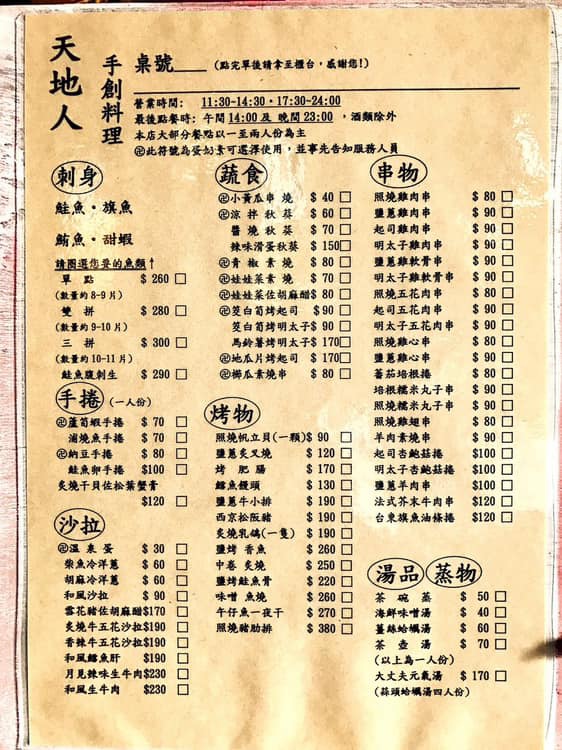 天地人
手創料理
桌號____ (點完單後請拿至櫃台，感謝您!)
營業時間: 11:30-14:30・17:30-24:00
最後點餐時: 午間 14:00 及 晚間 23:00 ，酒類除外
本店大部分餐點以一至兩人份為主
卍此符號為蛋奶素可選擇使用，並事先告知服務人員
刺身
鮭魚・旗魚
鮪魚・甜蝦
請圈選您要的魚類↑
單點 $260 □
(數量約 8-9 片)
雙拼 $280 □
(數量約 9-10 片)
三拼 $300 □
(數量約 10-11 片)
鮭魚腹刺生 $290 □
手捲 (一人份)
卍蘆筍蝦手捲 $70 □
浦燒魚手捲 $70 □
卍納豆手捲 $80 □
鮭魚卵手捲 $100 □
炙燒干貝佐松葉蟹膏
$120 □
沙拉
卍溫泉蛋 $30 □
柴魚冷洋蔥 $60 □
胡麻冷洋蔥 $60 □
和風沙拉 $90 □
雪花豬佐胡麻醋$170 □
炙燒牛五花沙拉$190 □
香辣牛五花沙拉$190 □
和風鱈魚肝 $190 □
月見辣味生牛肉$230 □
和風生牛肉 $230 □
蔬食
卍小黃瓜串燒 $40 □
卍涼拌秋葵 $60 □
醬燒秋葵 $70 □
辣味滑蛋秋葵 $150 □
卍青椒素燒 $80 □
卍娃娃菜素燒 $70 □
卍娃娃菜佐胡麻醋$80 □
卍筊白筍烤起司 $90 □
筊白筍烤明太子$90 □
馬鈴薯烤明太子$170 □
卍地瓜片烤起司 $170 □
卍櫛瓜素燒 $80 □
烤物
照燒帆立貝(一顆)$90 □
鹽蔥炙叉燒 $120 □
烤肥腸 $170 □
鱈魚饅頭 $130 □
鹽蔥牛小排 $190 □
西京松阪豬 $190 □
炙燒乳鴿(一隻) $190 □
鹽烤香魚 $260 □
中卷炙燒 $250 □
鹽烤鮭魚骨 $220 □
味噌魚燒 $260 □
午仔魚一夜干 $270 □
照燒豬肋排 $380 □
串物
照燒雞肉串 $80 □
鹽蔥雞肉串 $90 □
起司雞肉串 $90 □
明太子雞肉串 $90 □
鹽蔥雞軟骨串 $90 □
明太子雞軟骨串 $90 □
照燒五花肉串 $80 □
起司五花肉串 $90 □
明太子五花肉串 $90 □
照燒雞心串 $80 □
鹽蔥雞心串 $90 □
蕃茄培根捲 $80 □
培根糯米丸子串 $90 □
照燒糯米丸子串 $90 □
照燒雞翅串 $80 □
羊肉素燒串 $90 □
起司杏鮑菇捲 $100 □
明太子杏鮑菇捲 $100 □
鹽蔥羊肉串 $100 □
法式芥末牛肉串 $120 □
台東旗魚油條捲 $120 □
湯品 蒸物
茶碗蒸 $50 □
海鮮味噌湯 $40 □
薑絲蛤蠣湯 $60 □
茶壺湯 $70 □
(以上為一人份)
大丈夫元氣湯 $170 □
(蒜頭蛤蠣湯四人份)